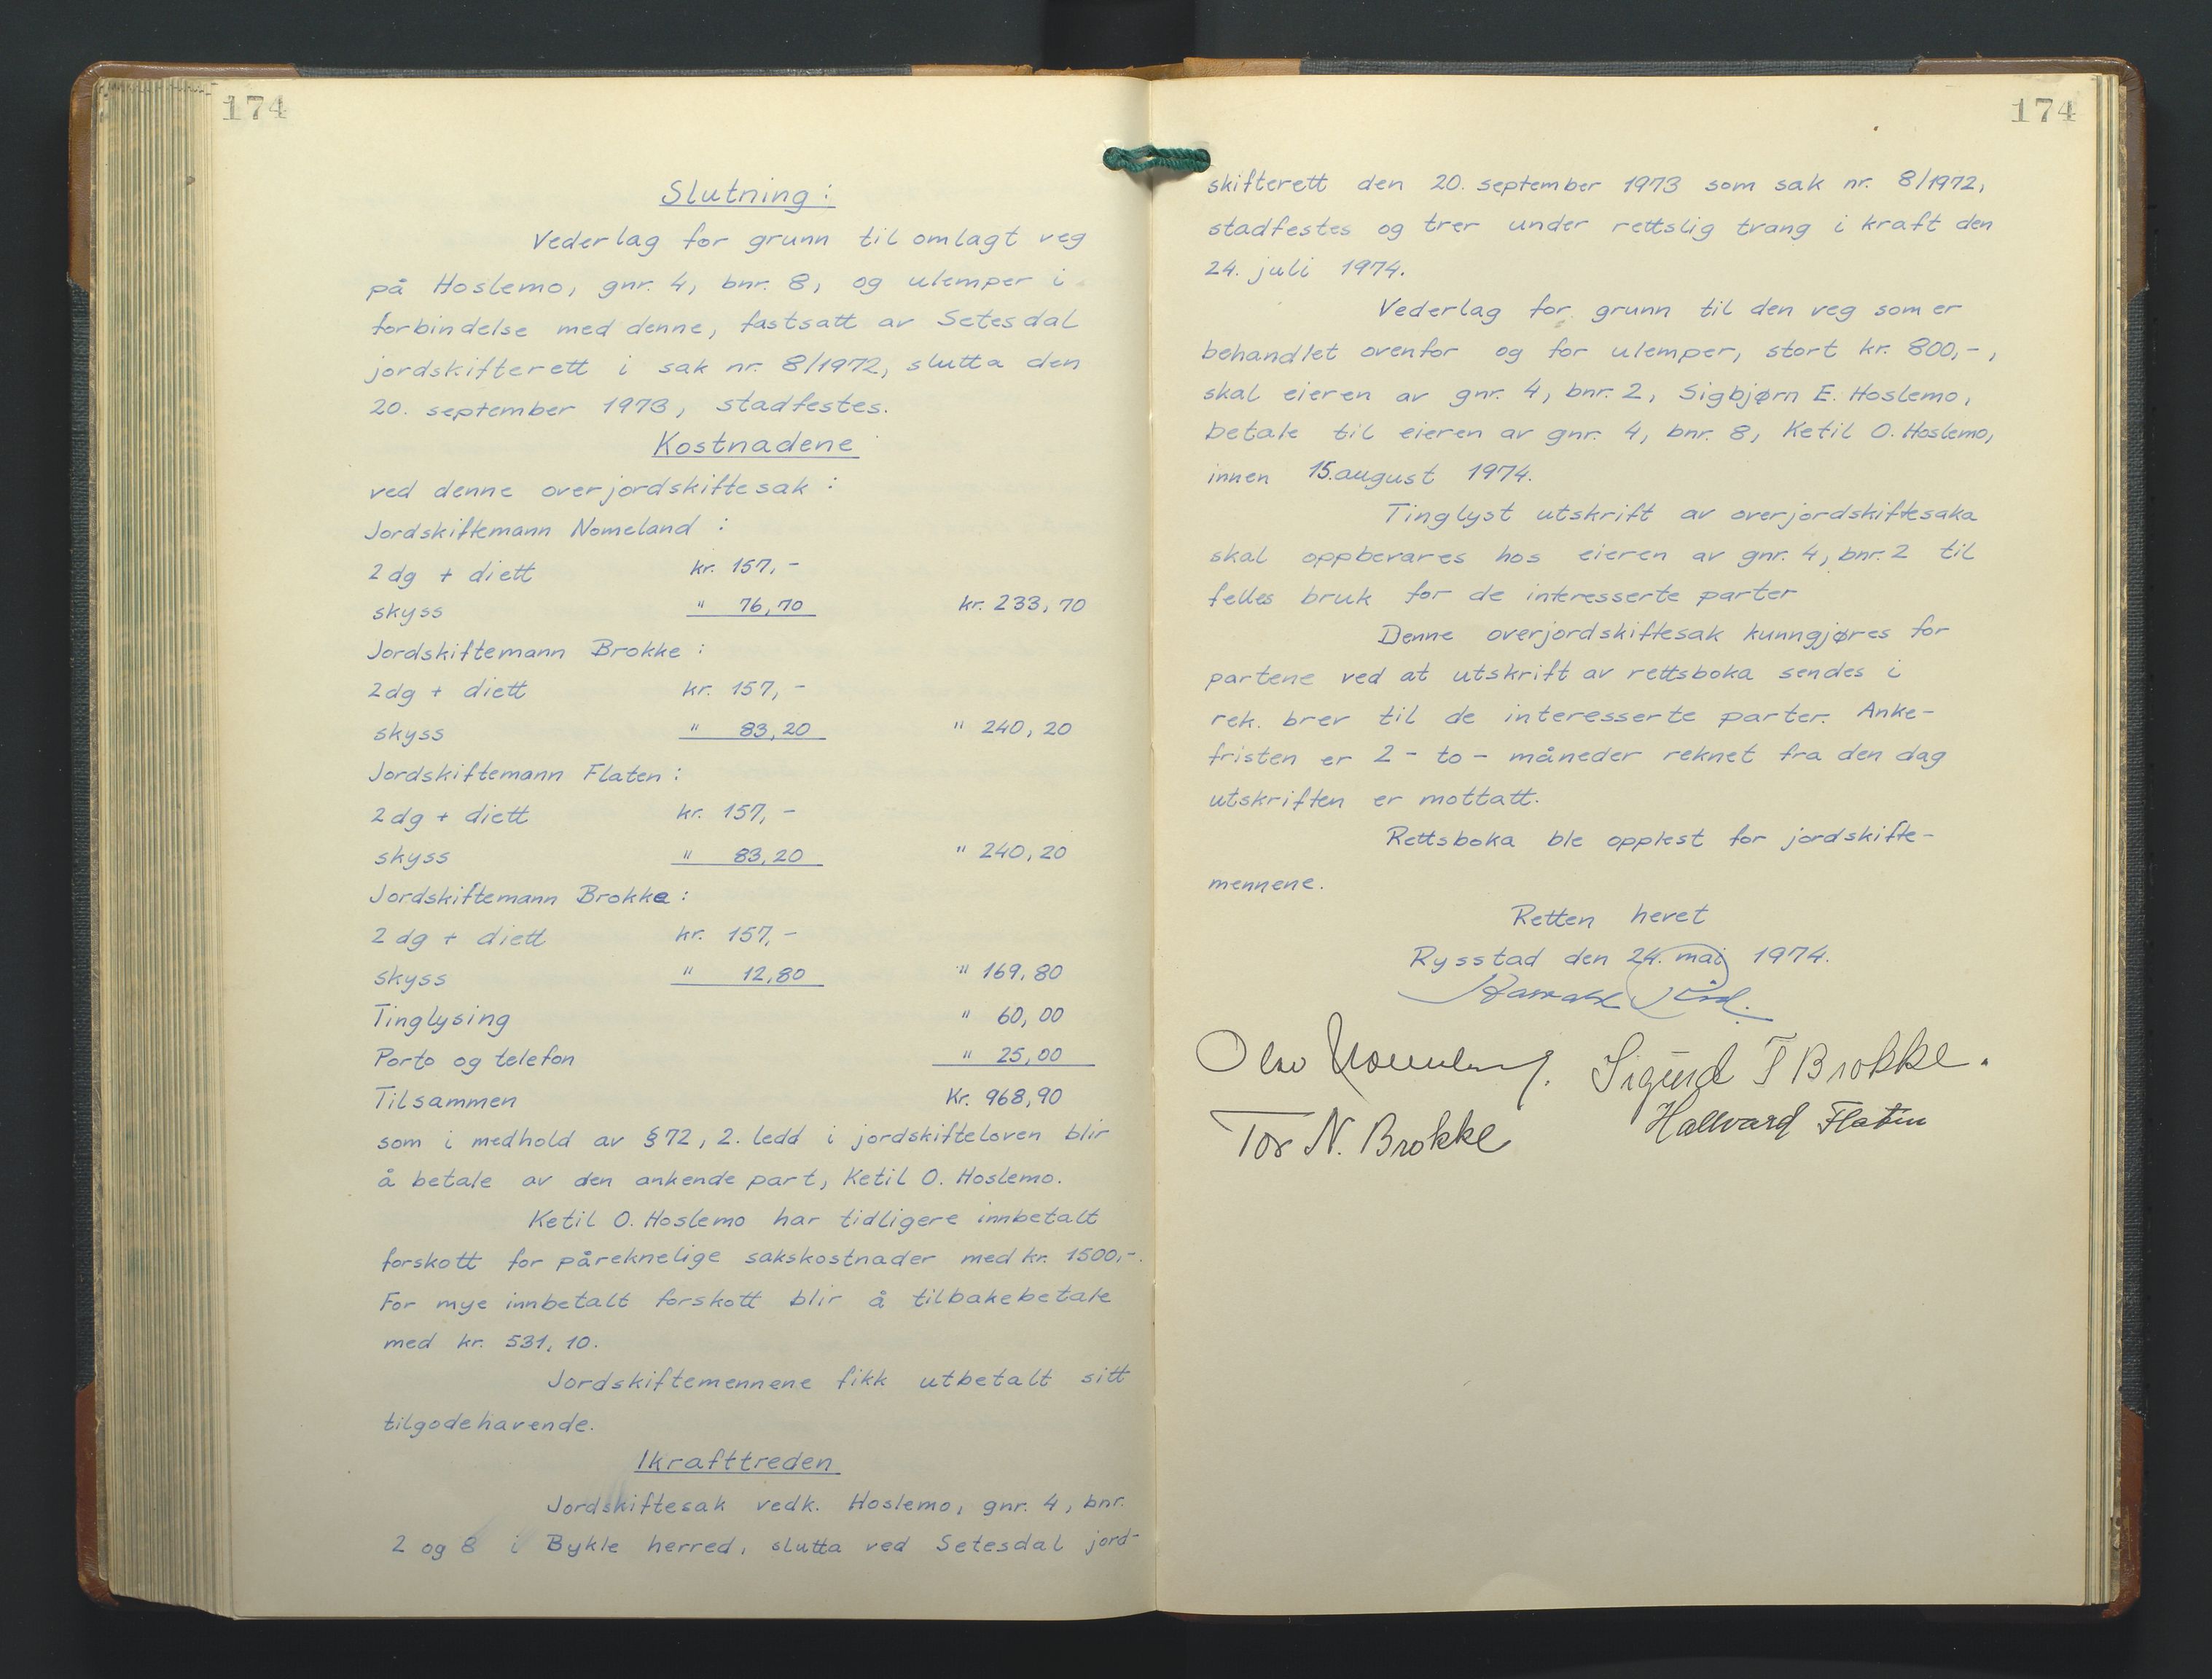 174
Slutning:
Vederlag for grunn til omlagt veg
på Hoslemo, gnr. 4, bnr. 8, og ulemper i
forbindelse med denne, fastsatt av Setesdal
jordskifterett i sak nr. 8/1972, slutta den
20. september 1973, stadfestes.
Kostnadene
ved denne overjordskiftesak:
Jordskiftemann Nomeland:
2 dg + diett kr. 157,-
skyss " 76,70 kr. 233,70
Jordskiftemann Brokke:
2 dg + diett kr. 157,-
skyss " 83,20 " 240,20
Jordskiftemann Flaten:
2 dg + diett kr. 157,-
skyss " 83,20 " 240,20
Jordskiftemann Brokke:
2 dg + diett kr. 157,-
skyss " 12,80 " 169,80
Tinglysing " 60,00
Porto og telefon " 25,00
Tilsammen Kr. 968,90
som i medhold av § 72, 2. ledd i jordskifteloven blir
å betale av den ankende part, Ketil O. Hoslemo.
Ketil O. Hoslemo har tidligere innbetalt
forskott for påreknelige sakskostnader med kr. 1500,-.
For mye innbetalt forskott blir å tilbakebetale
med kr. 531,10.
Jordskiftemennene fikk utbetalt sitt
tilgodehavende.
Ikrafttreden
Jordskiftesak vedk. Hoslemo, gnr. 4, bnr.
2 og 8 i Bykle herred, slutta ved Setesdal jord-
174
skifterett den 20. september 1973 som sak nr. 8/1972,
stadfestes og trer under rettslig tvang i kraft den
24. juli 1974.
Vederlag for grunn til den veg som er
behandlet ovenfor og for ulemper, stort kr. 800,-,
skal eieren av gnr. 4, bnr. 2, Sigbjørn E. Hoslemo,
betale til eieren av gnr. 4, bnr. 8, Ketil O. Hoslemo,
innen 15. august 1974.
Tinglyst utskrift av overjordskiftesaka
skal oppbevares hos eieren av gnr. 4, bnr. 2 til
felles bruk for de interesserte parter
Denne overjordskiftesak kunngjøres for
partene ved at utskrift av rettsboka sendes i
rek. brev til de interesserte parter. Anke-
fristen er 2 - to - måneder reknet fra den dag
utskriften er mottatt.
Rettsboka ble opplest for jordskifte-
mennene.
Retten hevet
Rysstad den 24. mai 1974.
Olav Nomeland. Sigurd T Brokke.
Tor N. Brokke Hallvard Flaten